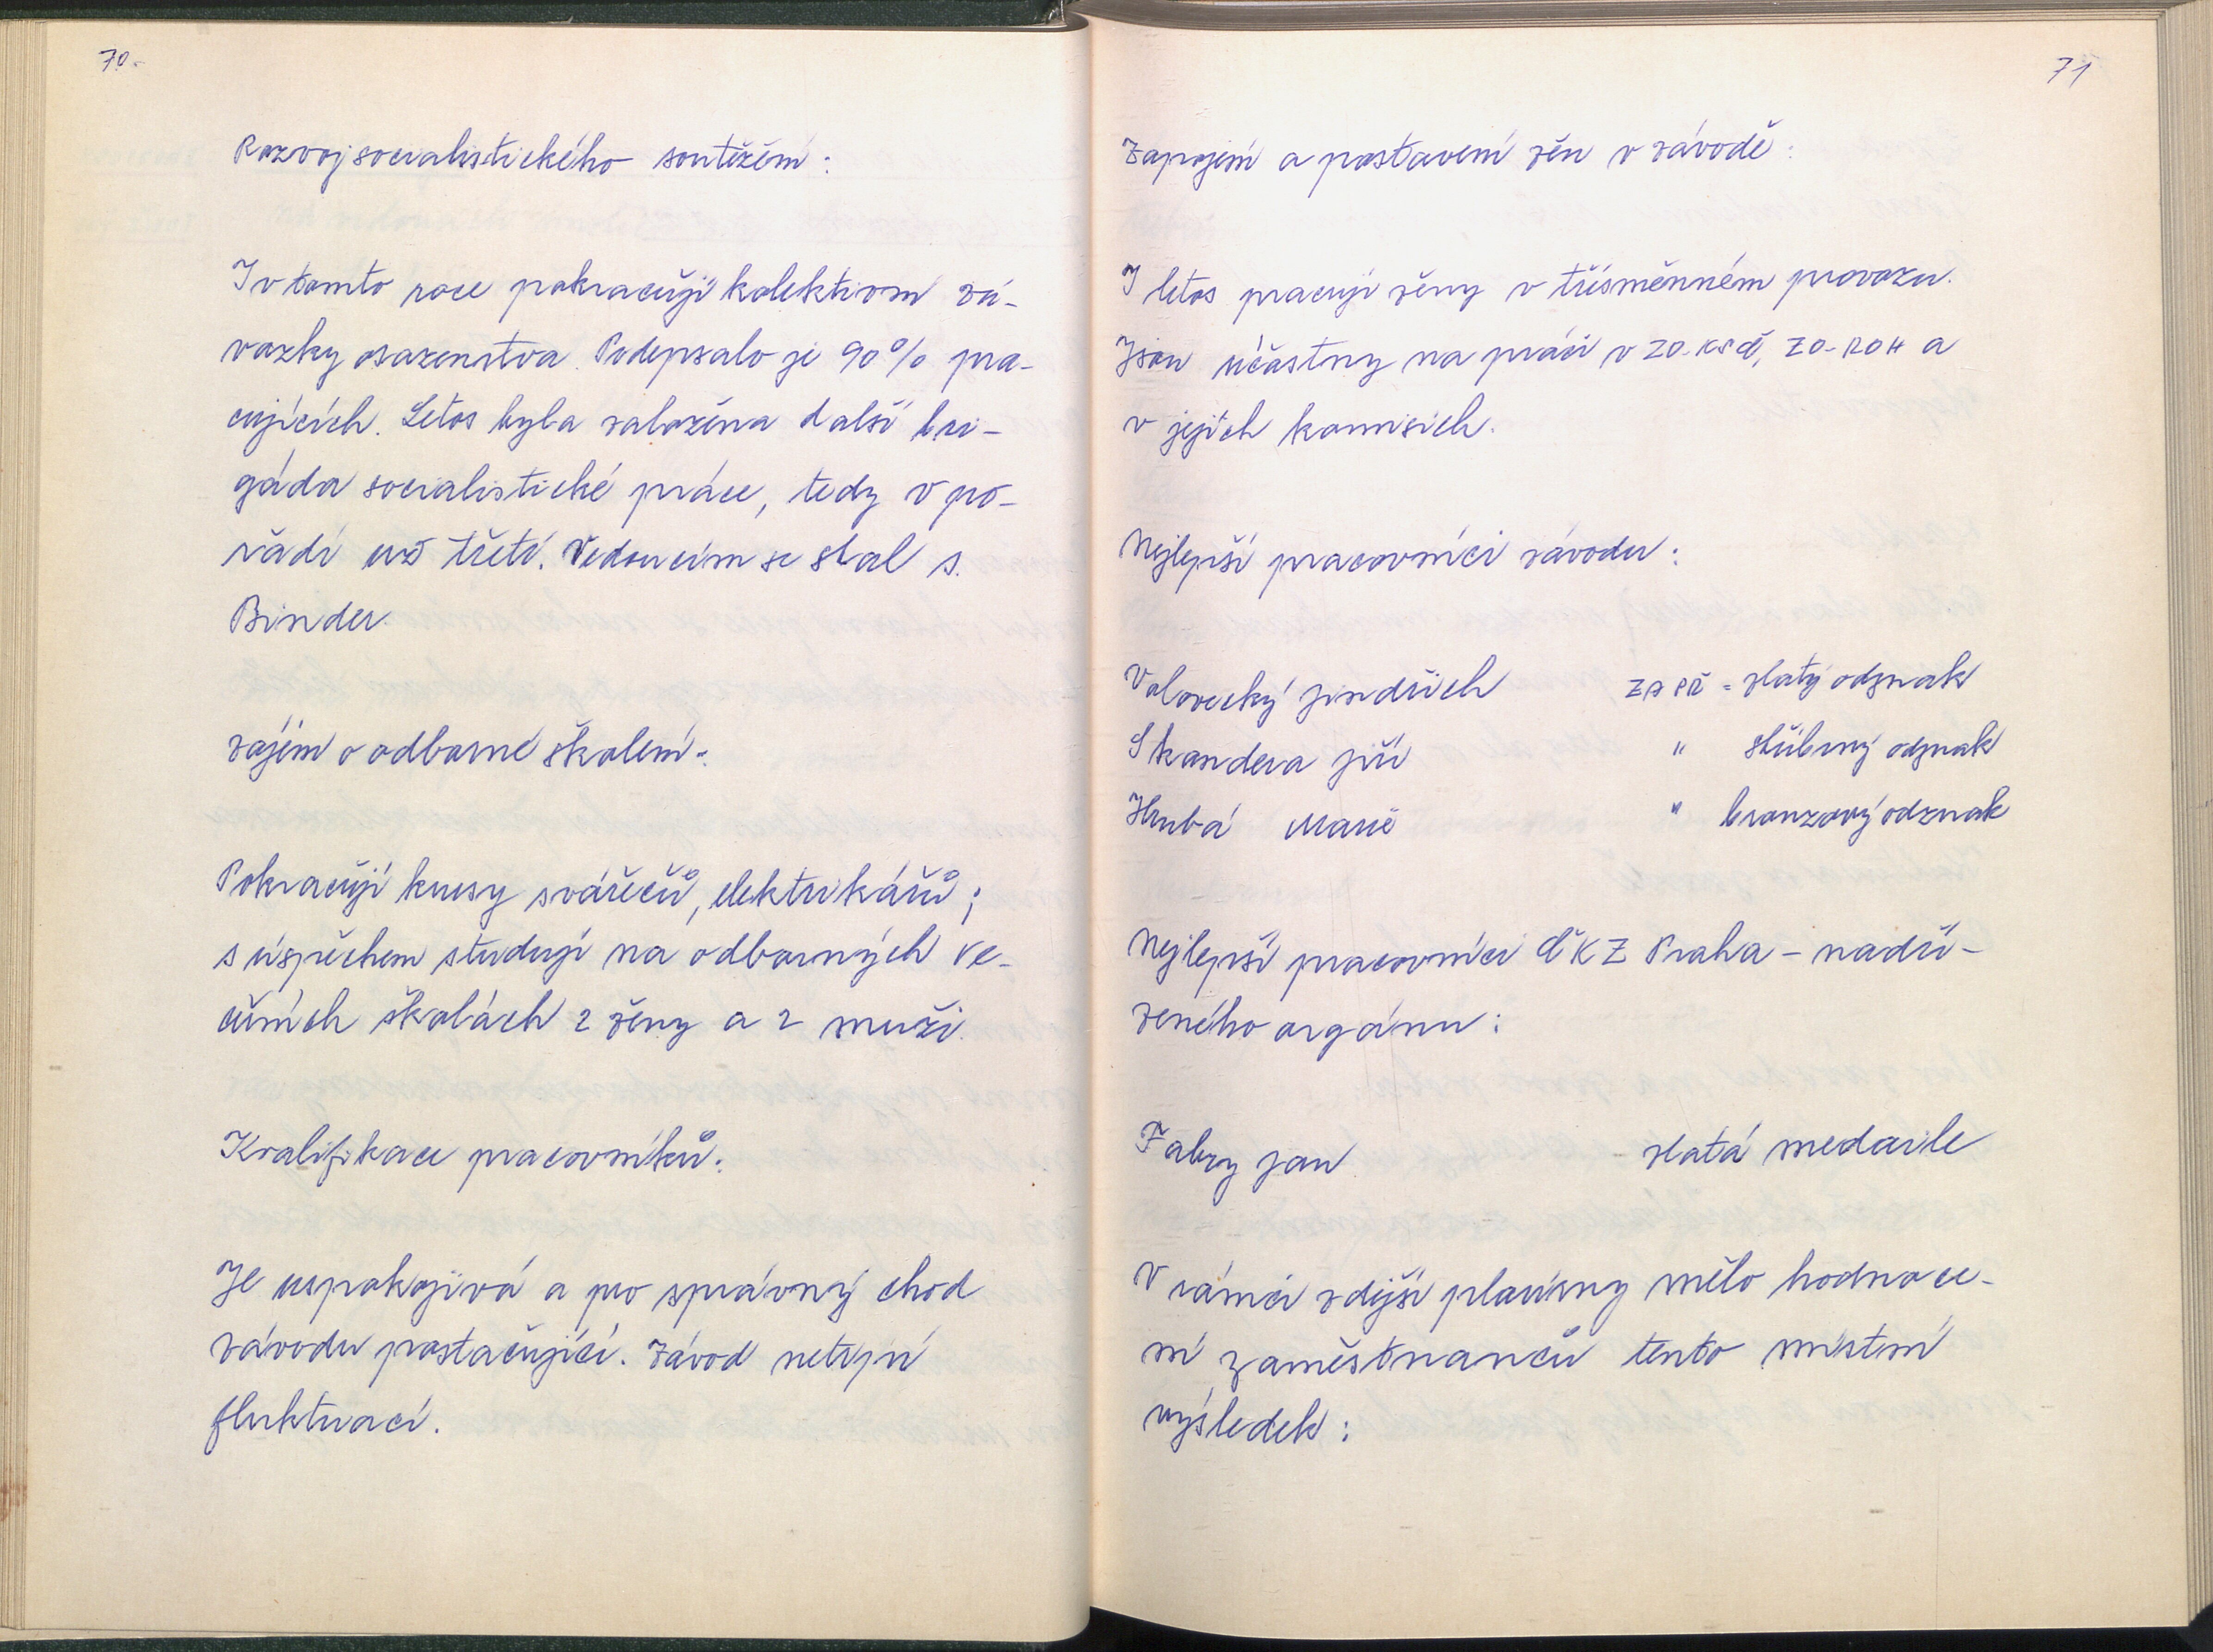 70.
Rozvoj socialistického soutěžení:
I v tomto roce pokračují kolektivní zá-
vazky osazenstva. Podepsalo je 90% pra-
cujících. Letos byla založena další bri-
gáda socialistické práce, tedy v po-
řadí už třetí. Vedoucím se stal s.
Binder.
zájem o odborné školení:
Pokračují kursy svářečů, elektrikářů;
s úspěchem studují na odborných ve-
černích školách 2 ženy a 2 muži.
Kvalifikace pracovníků:
Je uspokojivá a pro správný chod
závodu postačující. Závod netrpí
fluktuací.
71
Zapojení a postavení žen v závodě:
I letos pracují ženy v třísměnném provozu.
Jsou účastny na práci v ZO-KSČ, ZO-ROH a
v jejich komisích.
Nejlepší pracovníci závodu:
Volovecký Jindřich ZPSP = zlatý odznak
Skandera Jiří " stříbrný odznak
Hrubá Marie " bronzový odznak
Nejlepší pracovníci ČKZ Praha - nadří-
zeného orgánu:
Fabry Jan - zlatá medaile
V rámci zdejší plavírny mělo hodnoce-
ní zaměstnanců tento místní
výsledek: